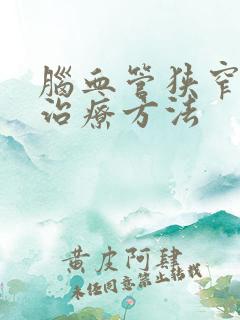 腦血管狹窄
治療方法
黃皮阿肆
未經同意禁止轉載